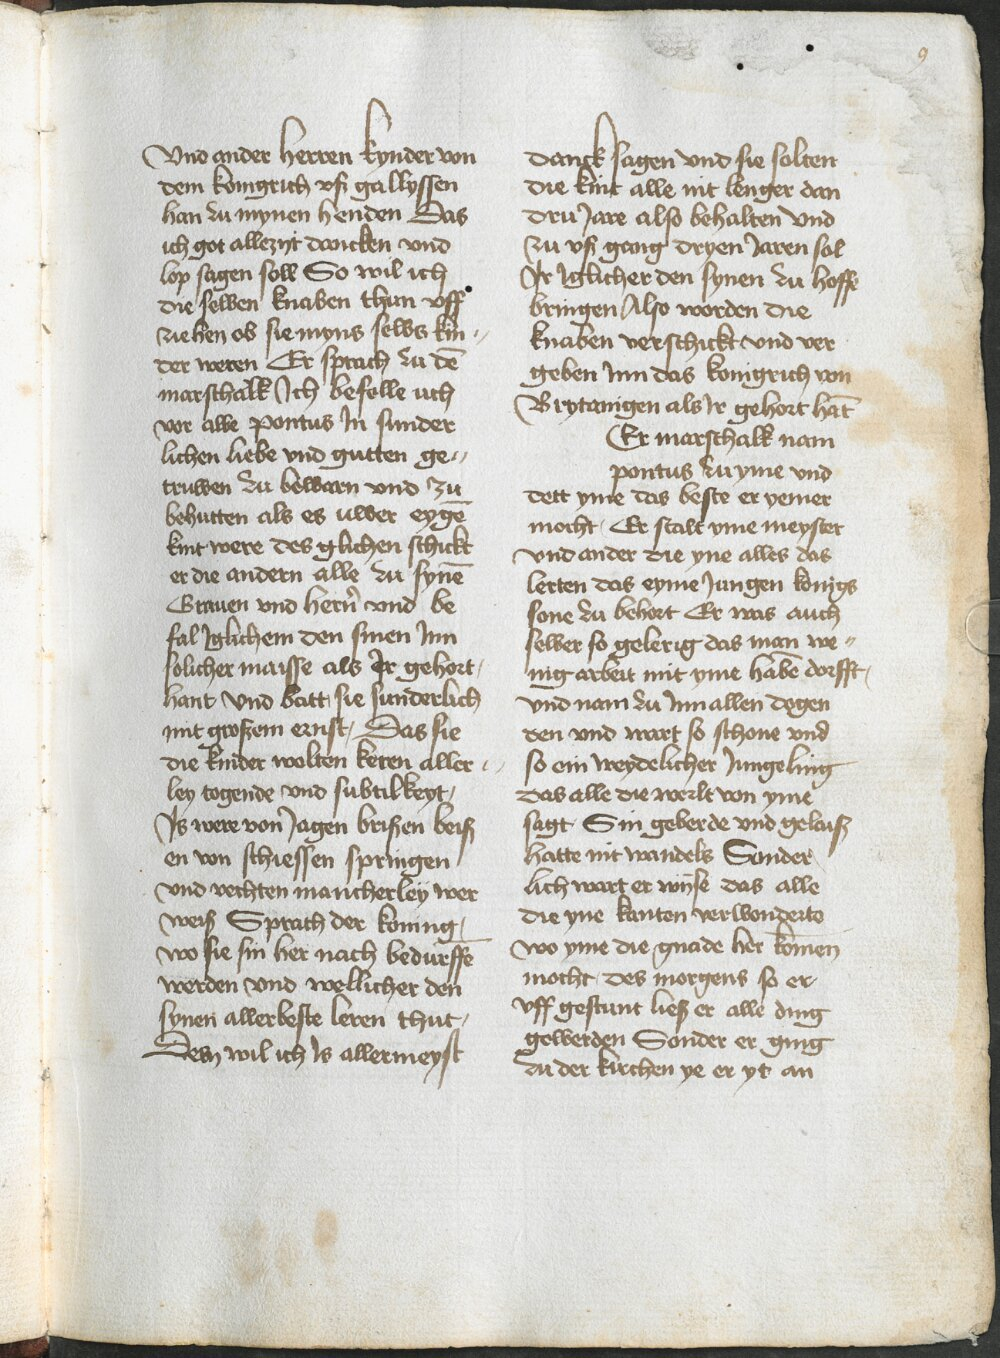 9
Und ander herren kynder von
dem konigrich uß gallyssen
han zu mynen henden Das
ich got allezyt dancken und
lop sagen soll So wil ich
die selben knaben thun uff
ziehen ob sie myns selbs kin〃
der weren Er sprach zu dē
marschalk Ich befelle uch
vor alle pontus In sunder
lichen liebe und gutten ge〃
truwen zu bewarn und zu
behutten als es uwer eygē
kint were des glichen schickt
er die andern alle zu synē
Grauen und hern̄ und be
fal Iglichem den sinen Inn
solicher maisse als Ir gehort
hant Und batt sie sunderlich
mit großem ernst Das sie
die kinder wolten keren aller
ley togende und subtilkeyt
Is were von Jagen brißen beiß
en von schiessen springen
und vechten mancherley wer
weiß Sprach der konnig
wo sie sin her nach bedurffe
werden und wellicher den
synen allerbeste leren thut
Dem wil ich Is allermeyst
danck sagen und sie solten
die kint alle nit lenger dan
dru Jare also behalten und
zu uß gang dryen Jaren sol
Ir Iglicher den synen zu hoffe
bringen Also worden die
knaben verschickt und ver
geben Inn das konigrich von
Brytanigen als Ir gehort hāt
Er marschalk nam
pontus zu yme und
dett yme das beste er yemer
mocht Er stalt yme meyster
und ander die yne alles das
lerten das eyme Jungen konigs
sone zu behort Er was auch
selber so gelerig das man we〃
nig arbeit mit yme habē dorfft
und nam zu Inn allen dogen
den und wart so schone und
so ein weydelicher Jungeling
das alle die werlt von yme
sagt Sin geberde und gelaiß
hatte nit wandels Sonder
lich wart er wyse das alle
die yne kanten verwonderte
wo yme die gnade her komen
mocht des morgens so er
uff gestunt ließ er alle ding
gewerden Sonder er ging
zu der kirchen ye er yt an